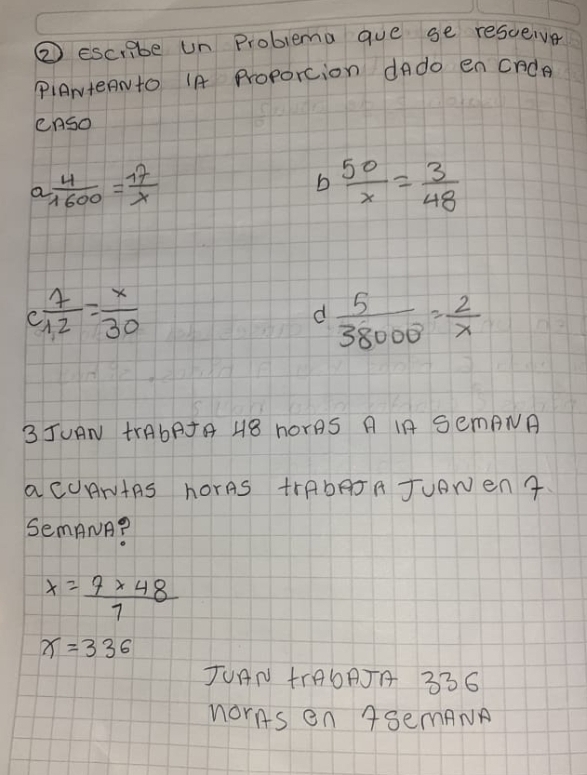 ② Escribe un Problema que se resuelva
PlANteANto lA Proporcion dAdo en CAdA
CASO
a 4/1600 = 17/x b 50/x = 3/48
c 7/1,2 = x/30 d 5/38000 = 2/x
3 JUAN trAbAJA 48 horAS A lA SemANA
a CUANtAS horAS trAbAJA JUAN en 7
SemANA?
x = 7 x 48 / 1
x = 336
JUAN trAbAJA 336
horAS en 7 SemANA